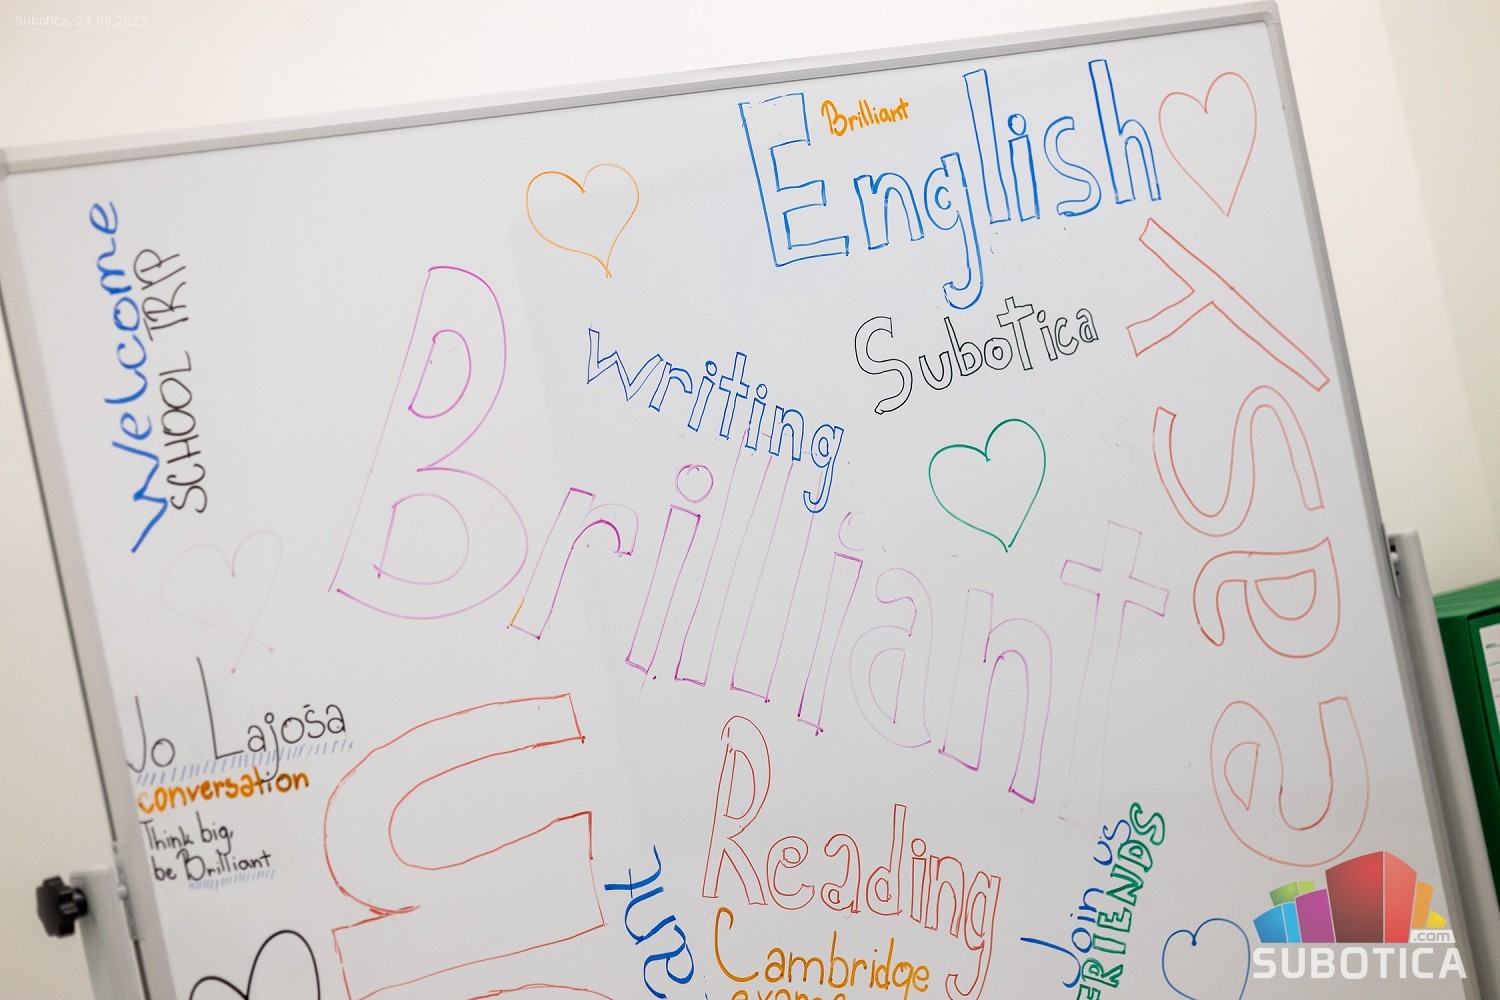 Subotica, 28.08.2025.
English
Brilliant
Welcome
SCHOOL TRIP
Subotica
writing
Brilliant
easy
Jo Lajoša
conversation
Think big,
be Brilliant
Reading
Cambridge
Join us
FRIENDS
.com
SUBOTICA